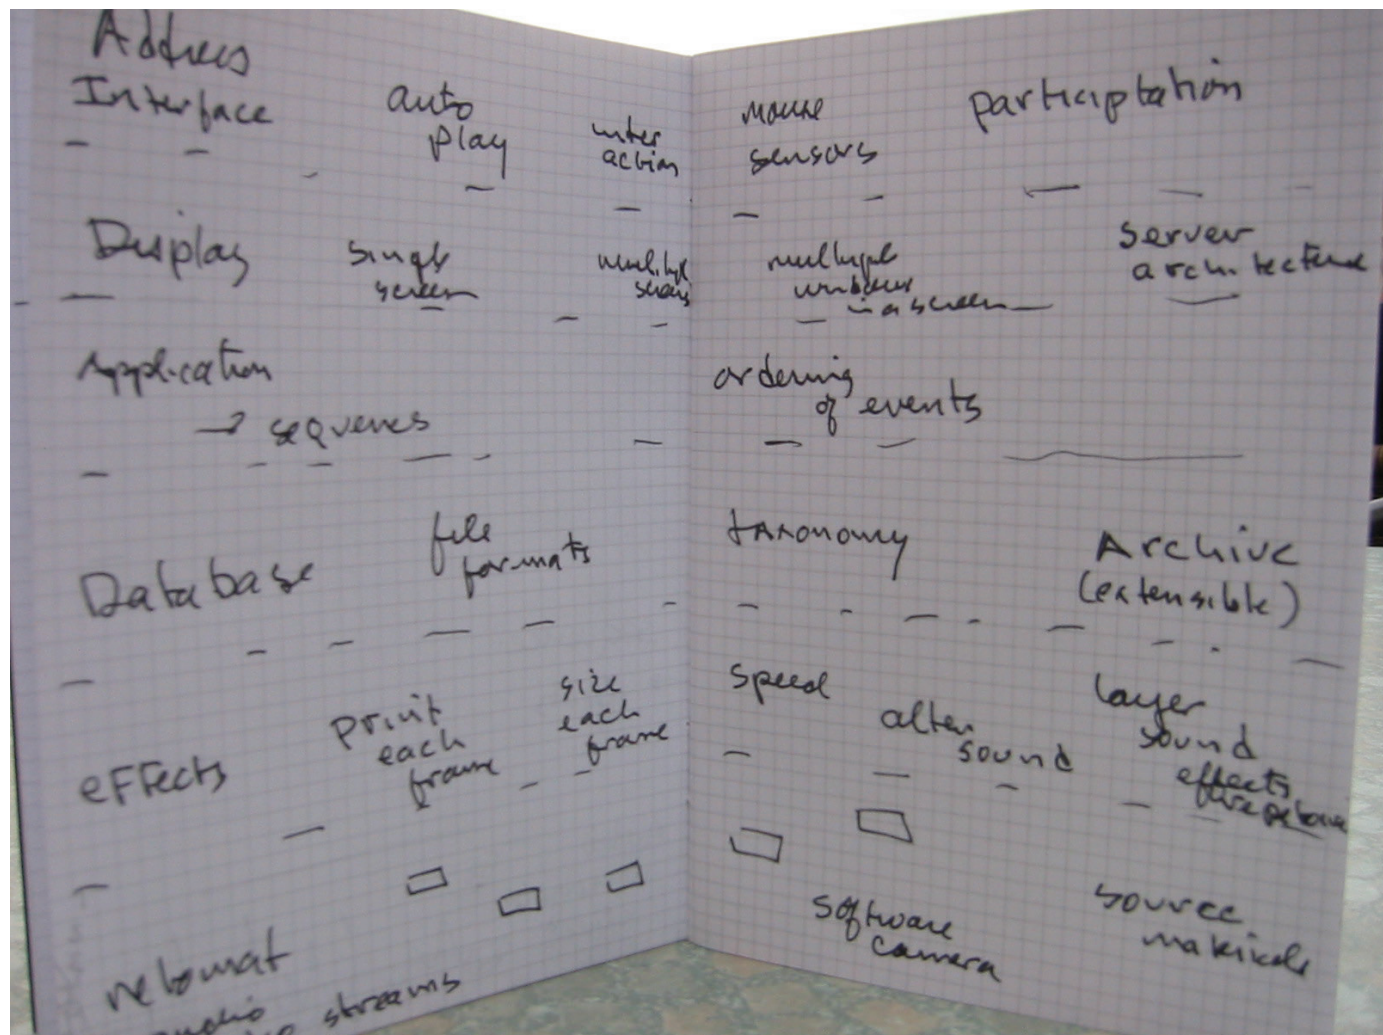 Address
Interface
auto
play
inter
action
mouse
sensors
participtation
Display
single
screen
multiple
multiple
windows
in a screen
server
architecture
Application
→ sequenes
ordering
of events
Database
file
formats
taxonomy
Archive
(extensible)
effects
print
each
frame
size
each
frame
speed
alter
sound
layer
sound
effects
netomat
audio
streams
software
camera
source